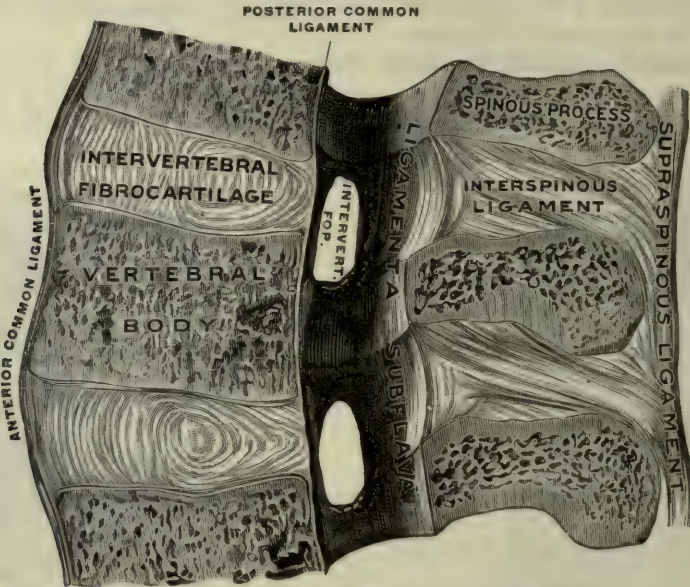 POSTERIOR COMMON
LIGAMENT
ANTERIOR COMMON LIGAMENT
INTERVERTEBRAL
FIBROCARTILAGE
VERTEBRAL
BODY
INTERVERT.
FOR.
LIGAMENTA SUBFLAVA
SPINOUS PROCESS
INTERSPINOUS
LIGAMENT
SUPRASPINOUS LIGAMENT